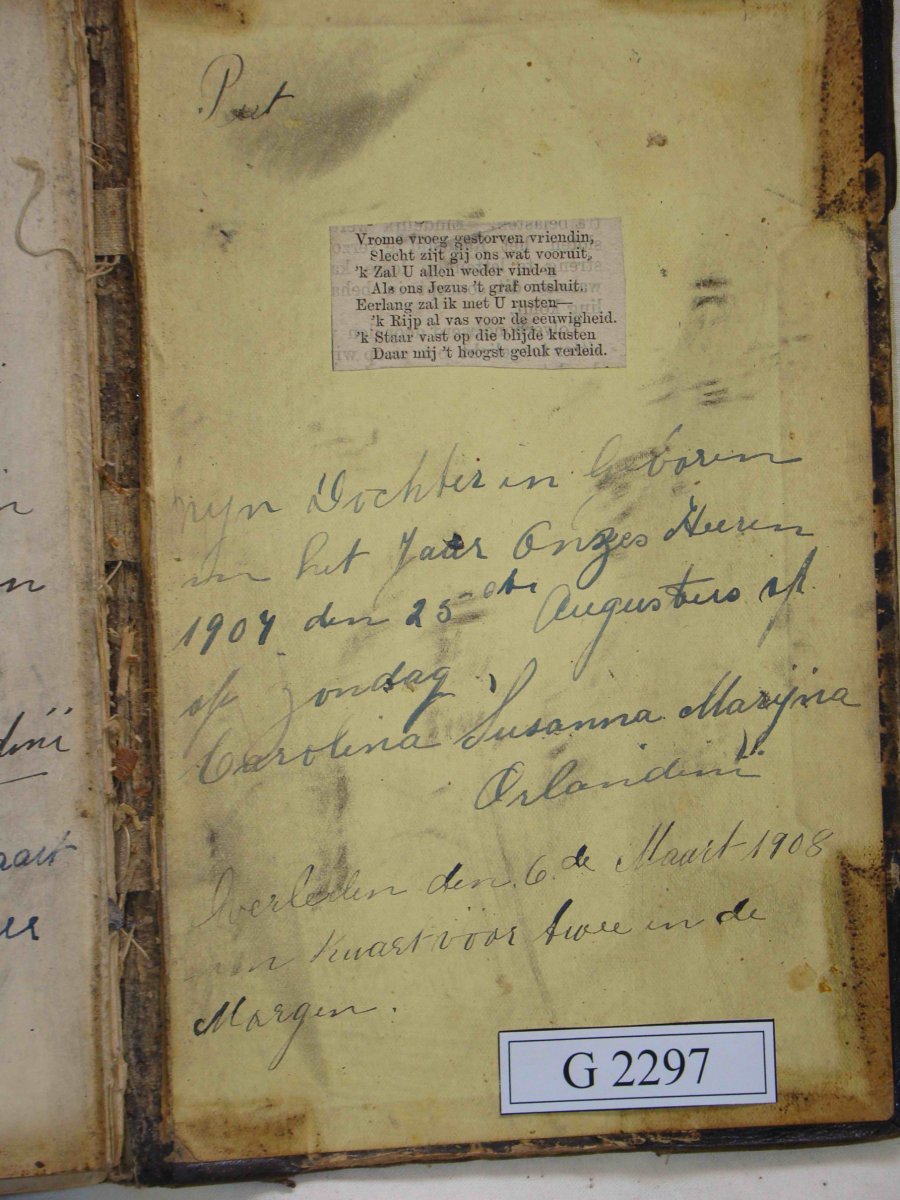 Vrome vroeg gestorven vriendin,
Slecht zijt gij ons wat vooruit,
'k Zal U allen weder vinden
Als ons Jezus 't graf ontsluit.
Eerlang zal ik met U rusten—
'k Rijp al vas voor de eeuwigheid.
'k Staar vast op die blijde kusten
Daar mij 't hoogst geluk verleid.
Dochter en Geboren
in het Jaar Onzes Heeren
1907 den 25 Augustus op
op Zondag
Carolina Susanna Marijna
Orlandini
Overleden den 6 de Maart 1908
Kwart voor twee in de
Morgen.
G 2297